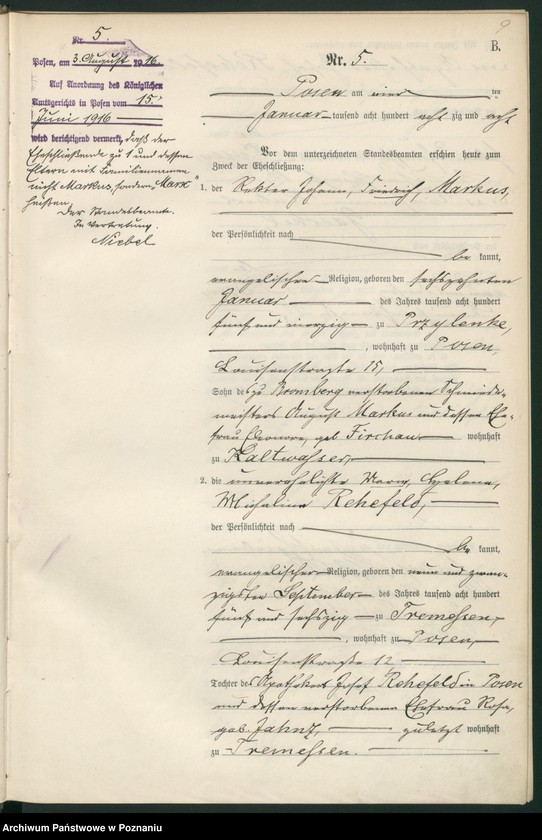 Nr. 5.
Posen, am 3. August 1916.
Auf Anordnung des Königlichen
Amtsgerichts in Posen vom 15.
Juni 1916
wird berichtigend vermerkt, daß der
Eheschließende zu 1 und dessen
Eltern mit Familiennamen
nicht Markus, sondern „Marx"
heißen.
Der Standesbeamte.
In Vertretung.
Niebel
9
B.
Nr. 5.
Posen am vier ten
Januar tausend acht hundert acht zig und acht
Vor dem unterzeichneten Standesbeamten erschien heute zum
Zweck der Eheschließung:
1. der Rektor Johann, Friedrich, Markus,
der Persönlichkeit nach
be kannt,
evangelischer Religion, geboren den sechszehnten
Januar des Jahres tausend acht hundert
fünf und vierzig zu Przylenke,
, wohnhaft zu Posen,
Louisenstraße 15,
Sohn des zu Bromberg verstorbenen Schmiede-
meisters August Markus und dessen Ehe-
frau Eleonore, geb. Firchau wohnhaft
zu Kaltwasser,
2. die unverehelichte Helene,
Michalina Rehefeld,
der Persönlichkeit nach
be kannt,
evangelischer Religion, geboren den neun und zwan-
zigsten September des Jahres tausend acht hundert
fünf und sechszig zu Tremessen,
, wohnhaft zu Posen,
Louisenstraße 12
Tochter des Apothekers Josef Rehefeld in Posen
und dessen verstorbene Ehefrau Rosa,
geb. Jahnz, zuletzt wohnhaft
zu Tremessen.
Archiwum Państwowe w Poznaniu